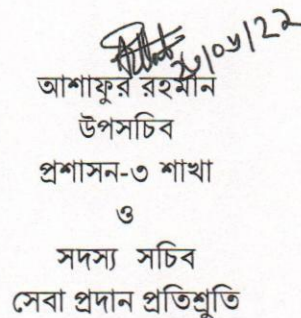 ২৮/০৬/২২
আশাফুর রহমান
উপসচিব
প্রশাসন-৩ শাখা
ও
সদস্য সচিব
সেবা প্রদান প্রতিশ্রুতি